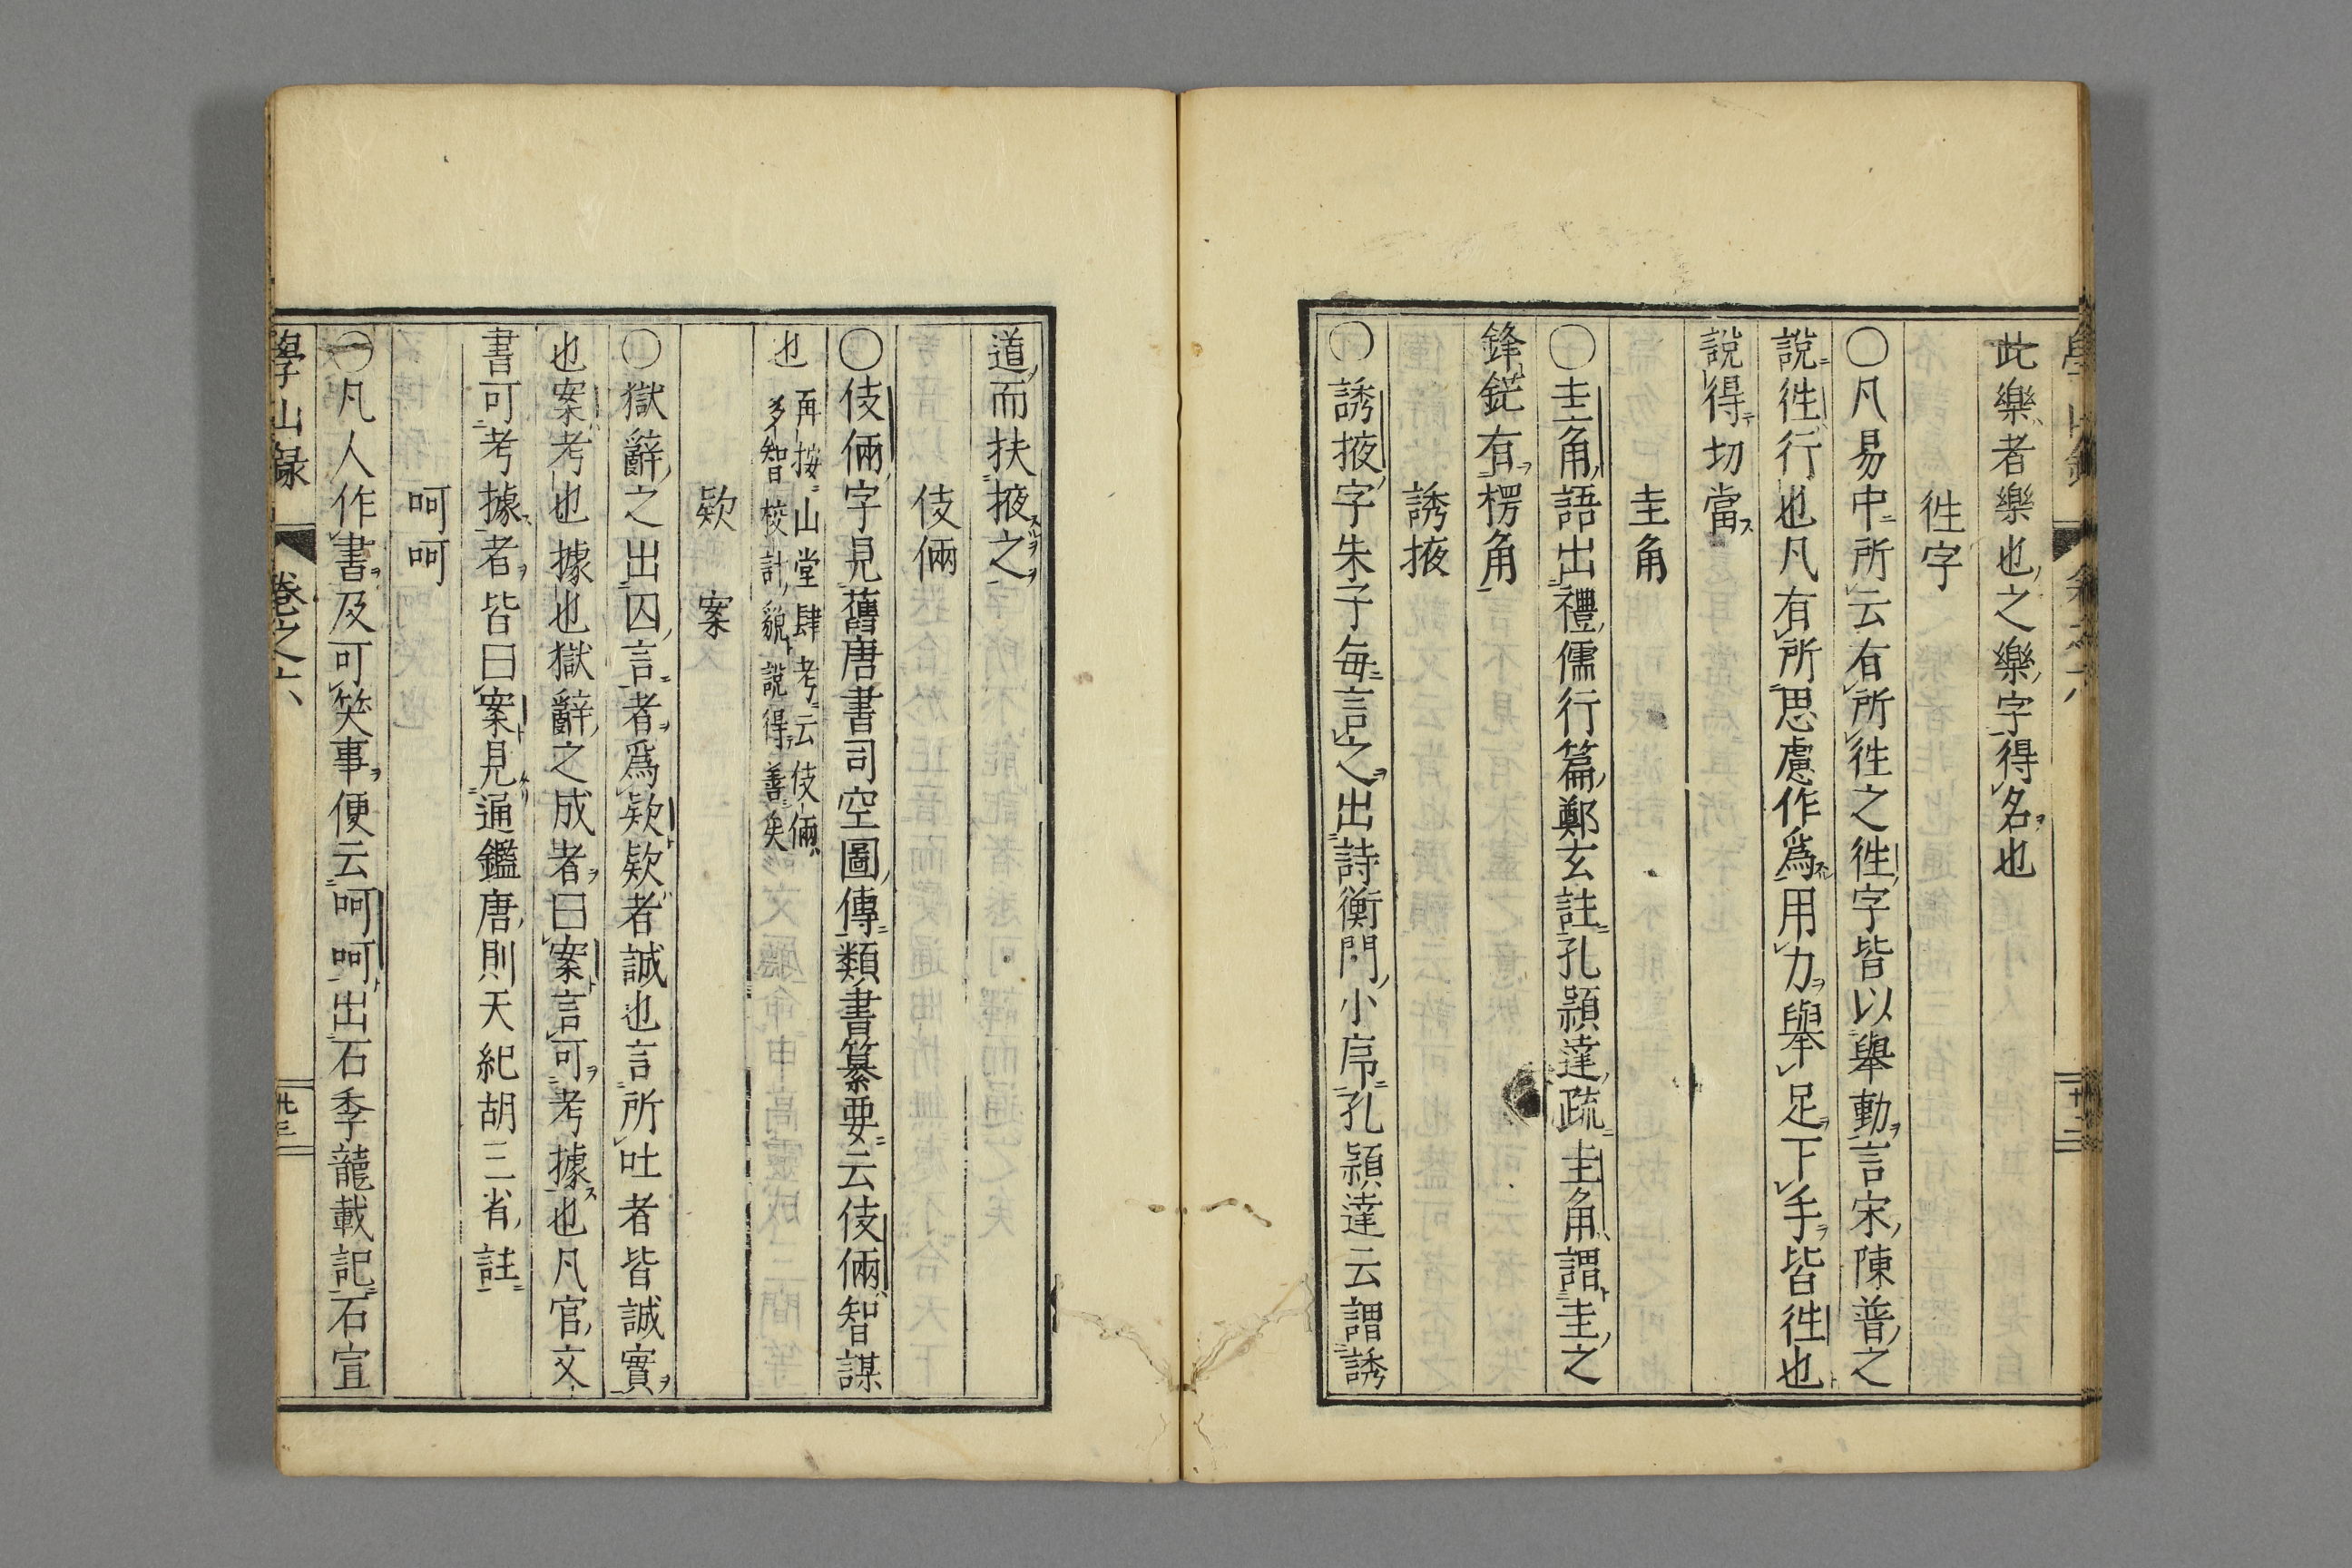 此樂者樂也之樂字得名也
徃字
〇凡易中所云有所徃之徃字皆以舉動言宋陳普之
說徃行也凡有所思慮作爲用力舉足下手皆徃也
說得切當
圭角
〇圭角語出禮儒行篇鄭玄註孔頴達疏圭角謂圭之
鋒鋩有楞角
誘掖
〇誘掖字朱子每言之出詩衡門小序孔頴達云謂誘
道而扶掖之
伎倆
〇伎倆字見舊唐書司空圖傳類書纂要云伎倆智謀
也再按山堂肆考云伎倆
多智校計貌說得善矣
欵案
〇獄辭之出囚言者爲欵欵者誠也言所吐者皆誠實
也案考也據也獄辭之成者曰案言可考據也凡官文
書可考據者皆曰案見通鑑唐則天紀胡三省註
呵呵
〇凡人作書及可笑事便云呵呵出石季龍載記石宣
學山録 卷之六 廿三